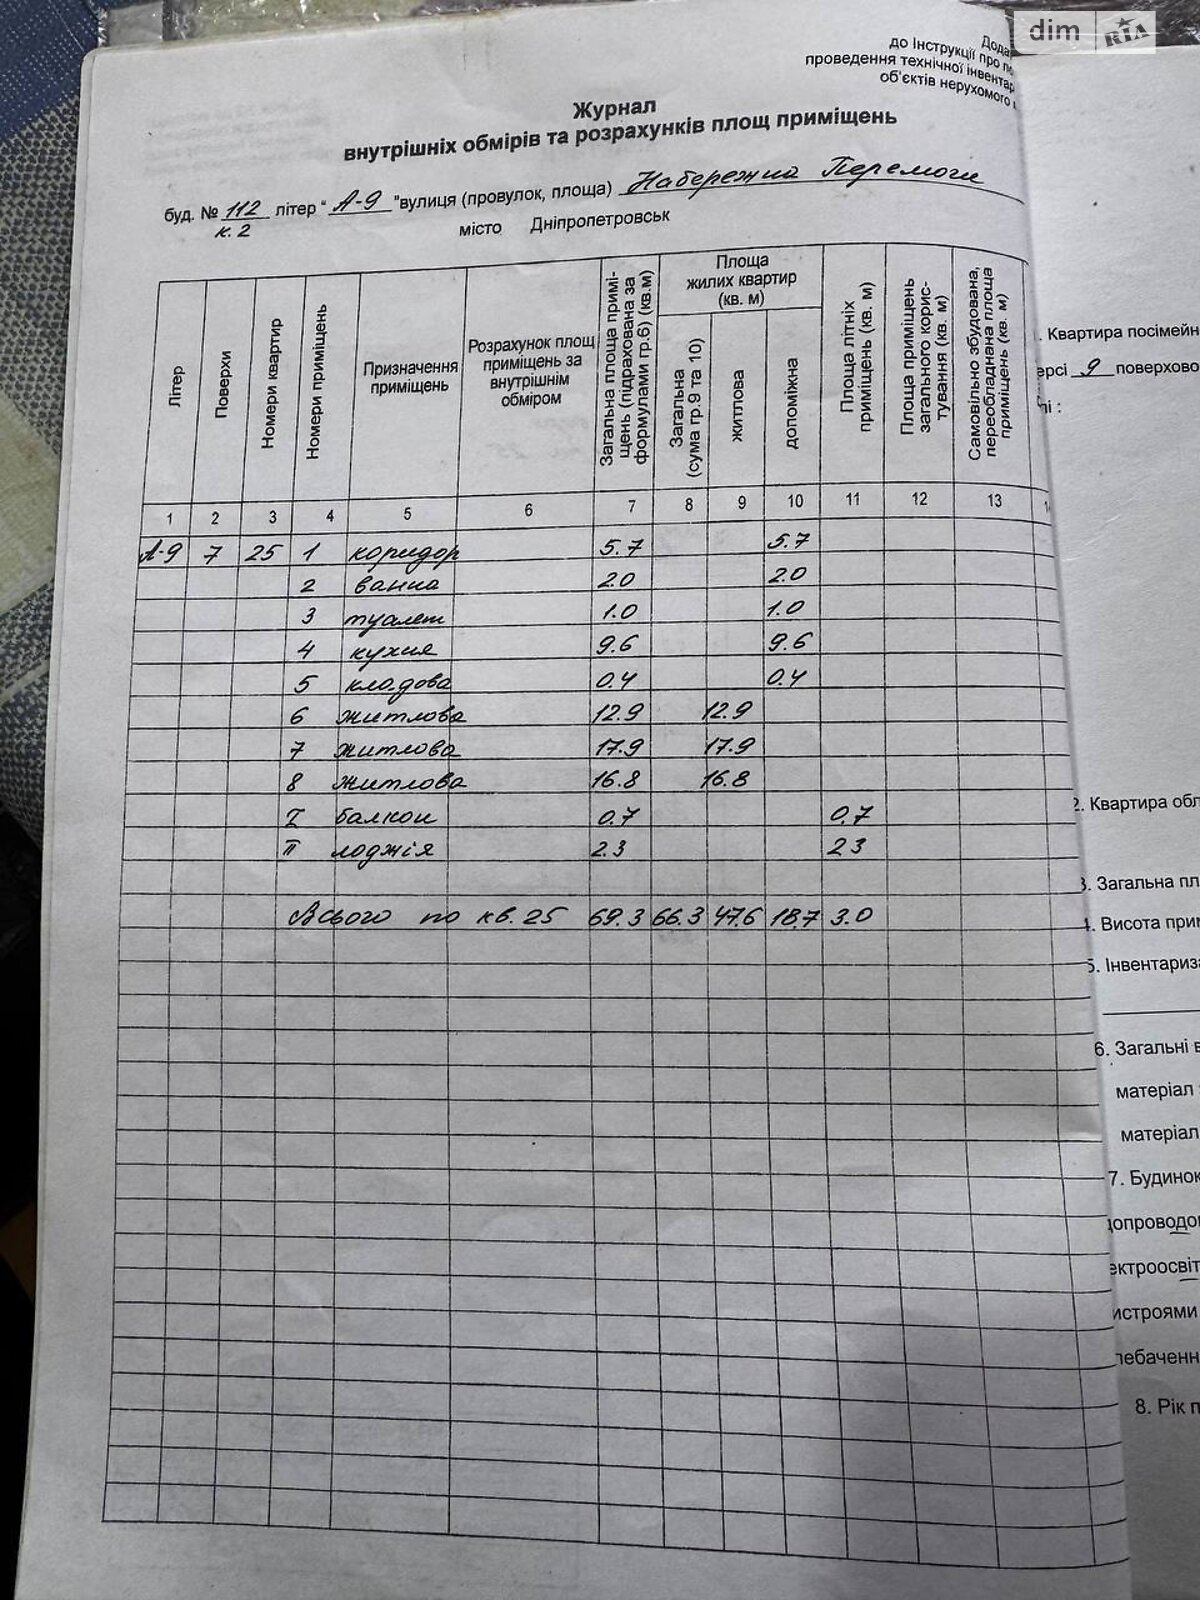 dim RIA
Дода
до Інструкції про по
проведення технічної інвентар
об'єктів нерухомого
Журнал
внутрішніх обмірів та розрахунків площ приміщень
буд. № 112 літер "А-9" вулиця (провулок, площа) Набережна Перемоги
к. 2
місто Дніпропетровськ
Літер
Поверхи
Номери квартир
Номери приміщень
Призначення приміщень
Розрахунок площ приміщень за внутрішнім обміром
Загальна площа примі-щень (підрахована за формулами гр.6) (кв.м)
Площа жилих квартир (кв. м)
Загальна (сума гр.9 та 10)
житлова
допоміжна
Площа літніх приміщень (кв. м)
Площа приміщень загального корис-тування (кв. м)
Самовільно збудована, переобладнана площа приміщень (кв. м)
1 2 3 4 5 6 7 8 9 10 11 12 13
А-9 7 25 1 коридор 5.7 5.7
2 ванна 2.0 2.0
3 туалет 1.0 1.0
4 кухня 9.6 9.6
5 кладова 0.4 0.4
6 житлова 12.9 12.9
7 житлова 17.9 17.9
8 житлова 16.8 16.8
I балкон 0.7 0.7
II лоджія 2.3 2.3
Всього по кв. 25 69.3 66.3 47.6 18.7 3.0
. Квартира посімейн
ерсі 9 поверхово
і :
2. Квартира обл
3. Загальна пл
4. Висота прим
5. Інвентариза
6. Загальні в
матеріал
матеріал
7. Будинок
допровод
ектроосвіт
истроями
лебаченн
8. Рік п